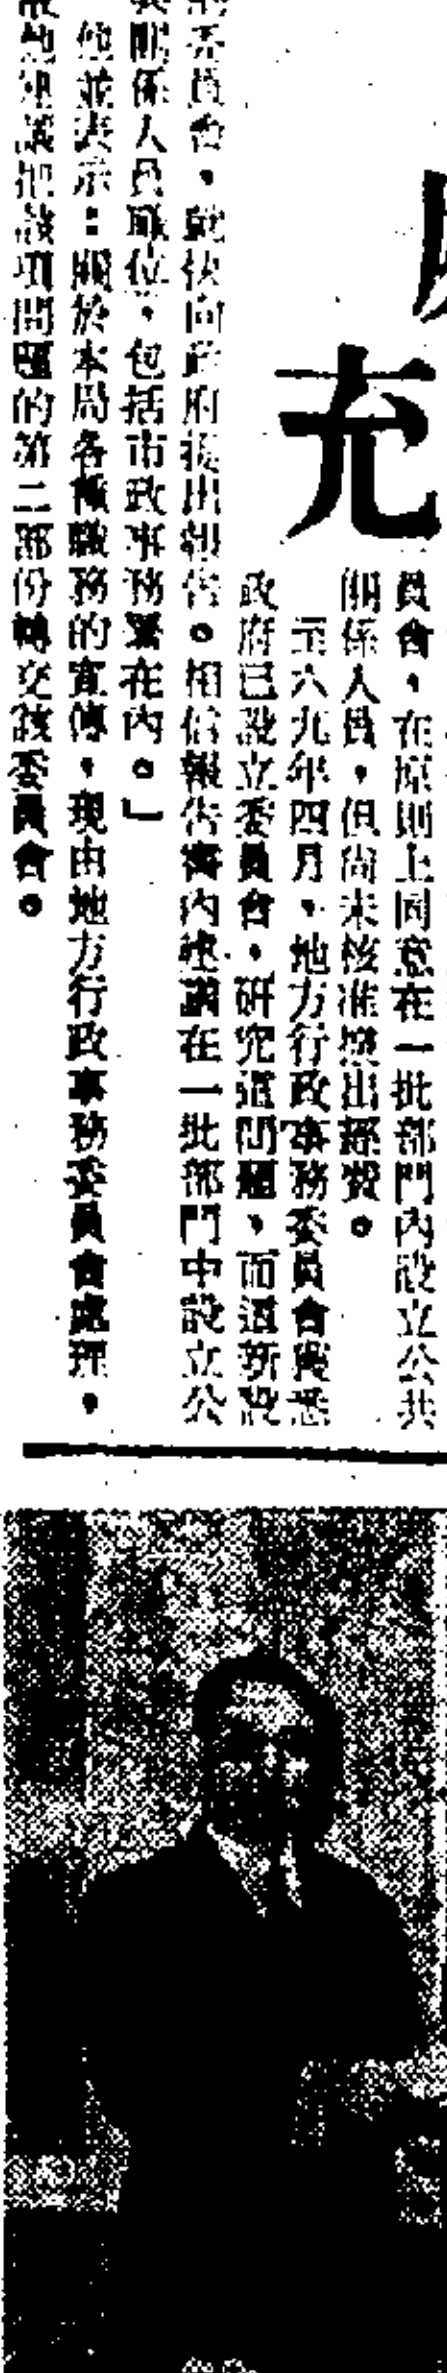 充
員會，在原則上同意在一批部門內設立公共
關係人員，但尚未核准撥出經費。
至六九年四月，地方行政事務委員會獲悉
政府已設立委員會，研究這問題，而這新設
委員會，就快向政府提出報告。相信報告書內建議在一批部門中設立公
關係人員職位，包括市政事務署在內。」
他並表示：關於本局各種職務的宣傳，現由地方行政事務委員會處理，
他建議把該項問題的第二部份轉交該委員會。